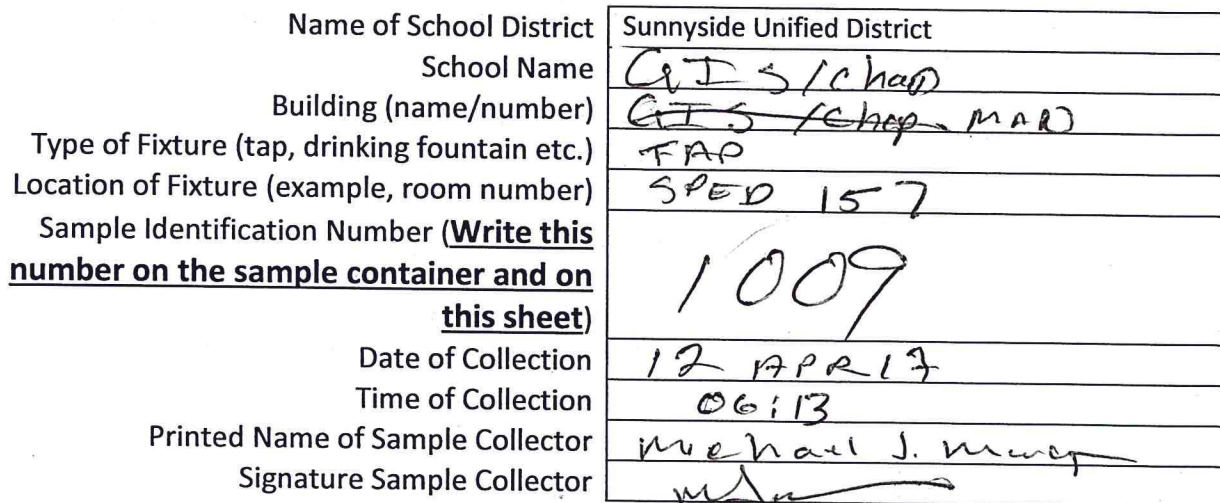 Name of School District Sunnyside Unified District
School Name GIS/Chap
Building (name/number) GIS/Chap. MAIN
Type of Fixture (tap, drinking fountain etc.) TAP
Location of Fixture (example, room number) SPED 157
Sample Identification Number (Write this
number on the sample container and on
this sheet)
1009
Date of Collection 12 APR 17
Time of Collection 06:13
Printed Name of Sample Collector Michael J.
Signature Sample Collector